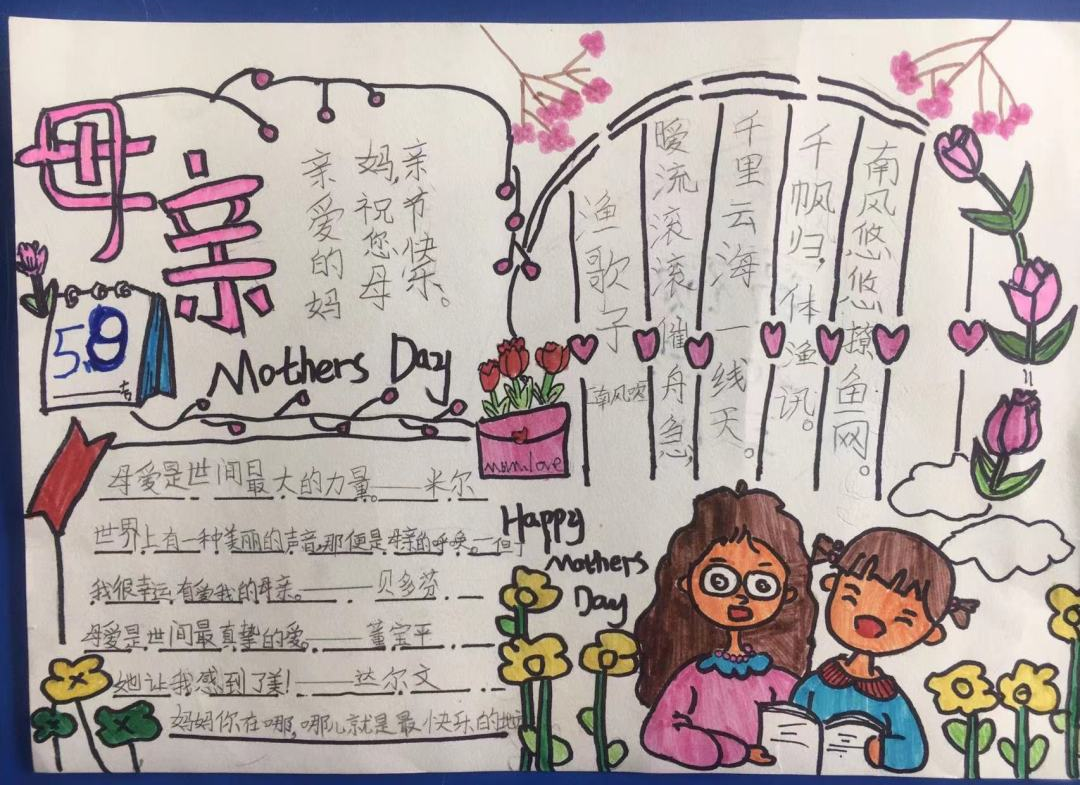 母
亲
5.8
亲爱的妈
妈,祝您母
亲节快乐。
Mothers Day
母爱是世间最大的力量。——米尔
世界上有一种美丽的声音,那便是母亲的呼唤。—但丁
我很幸运有爱我的母亲。——贝多芬
母爱是世间最真挚的爱。——董宝平
她让我感到了美!——达尔文
妈妈你在哪,哪儿就是最快乐的地
mom love
南风悠悠撩鱼网。
千帆归,体渔讯。
千里云海一线天。
暧流滚滚催舟急,
渔歌子
南风
Happy
Mothers
Day